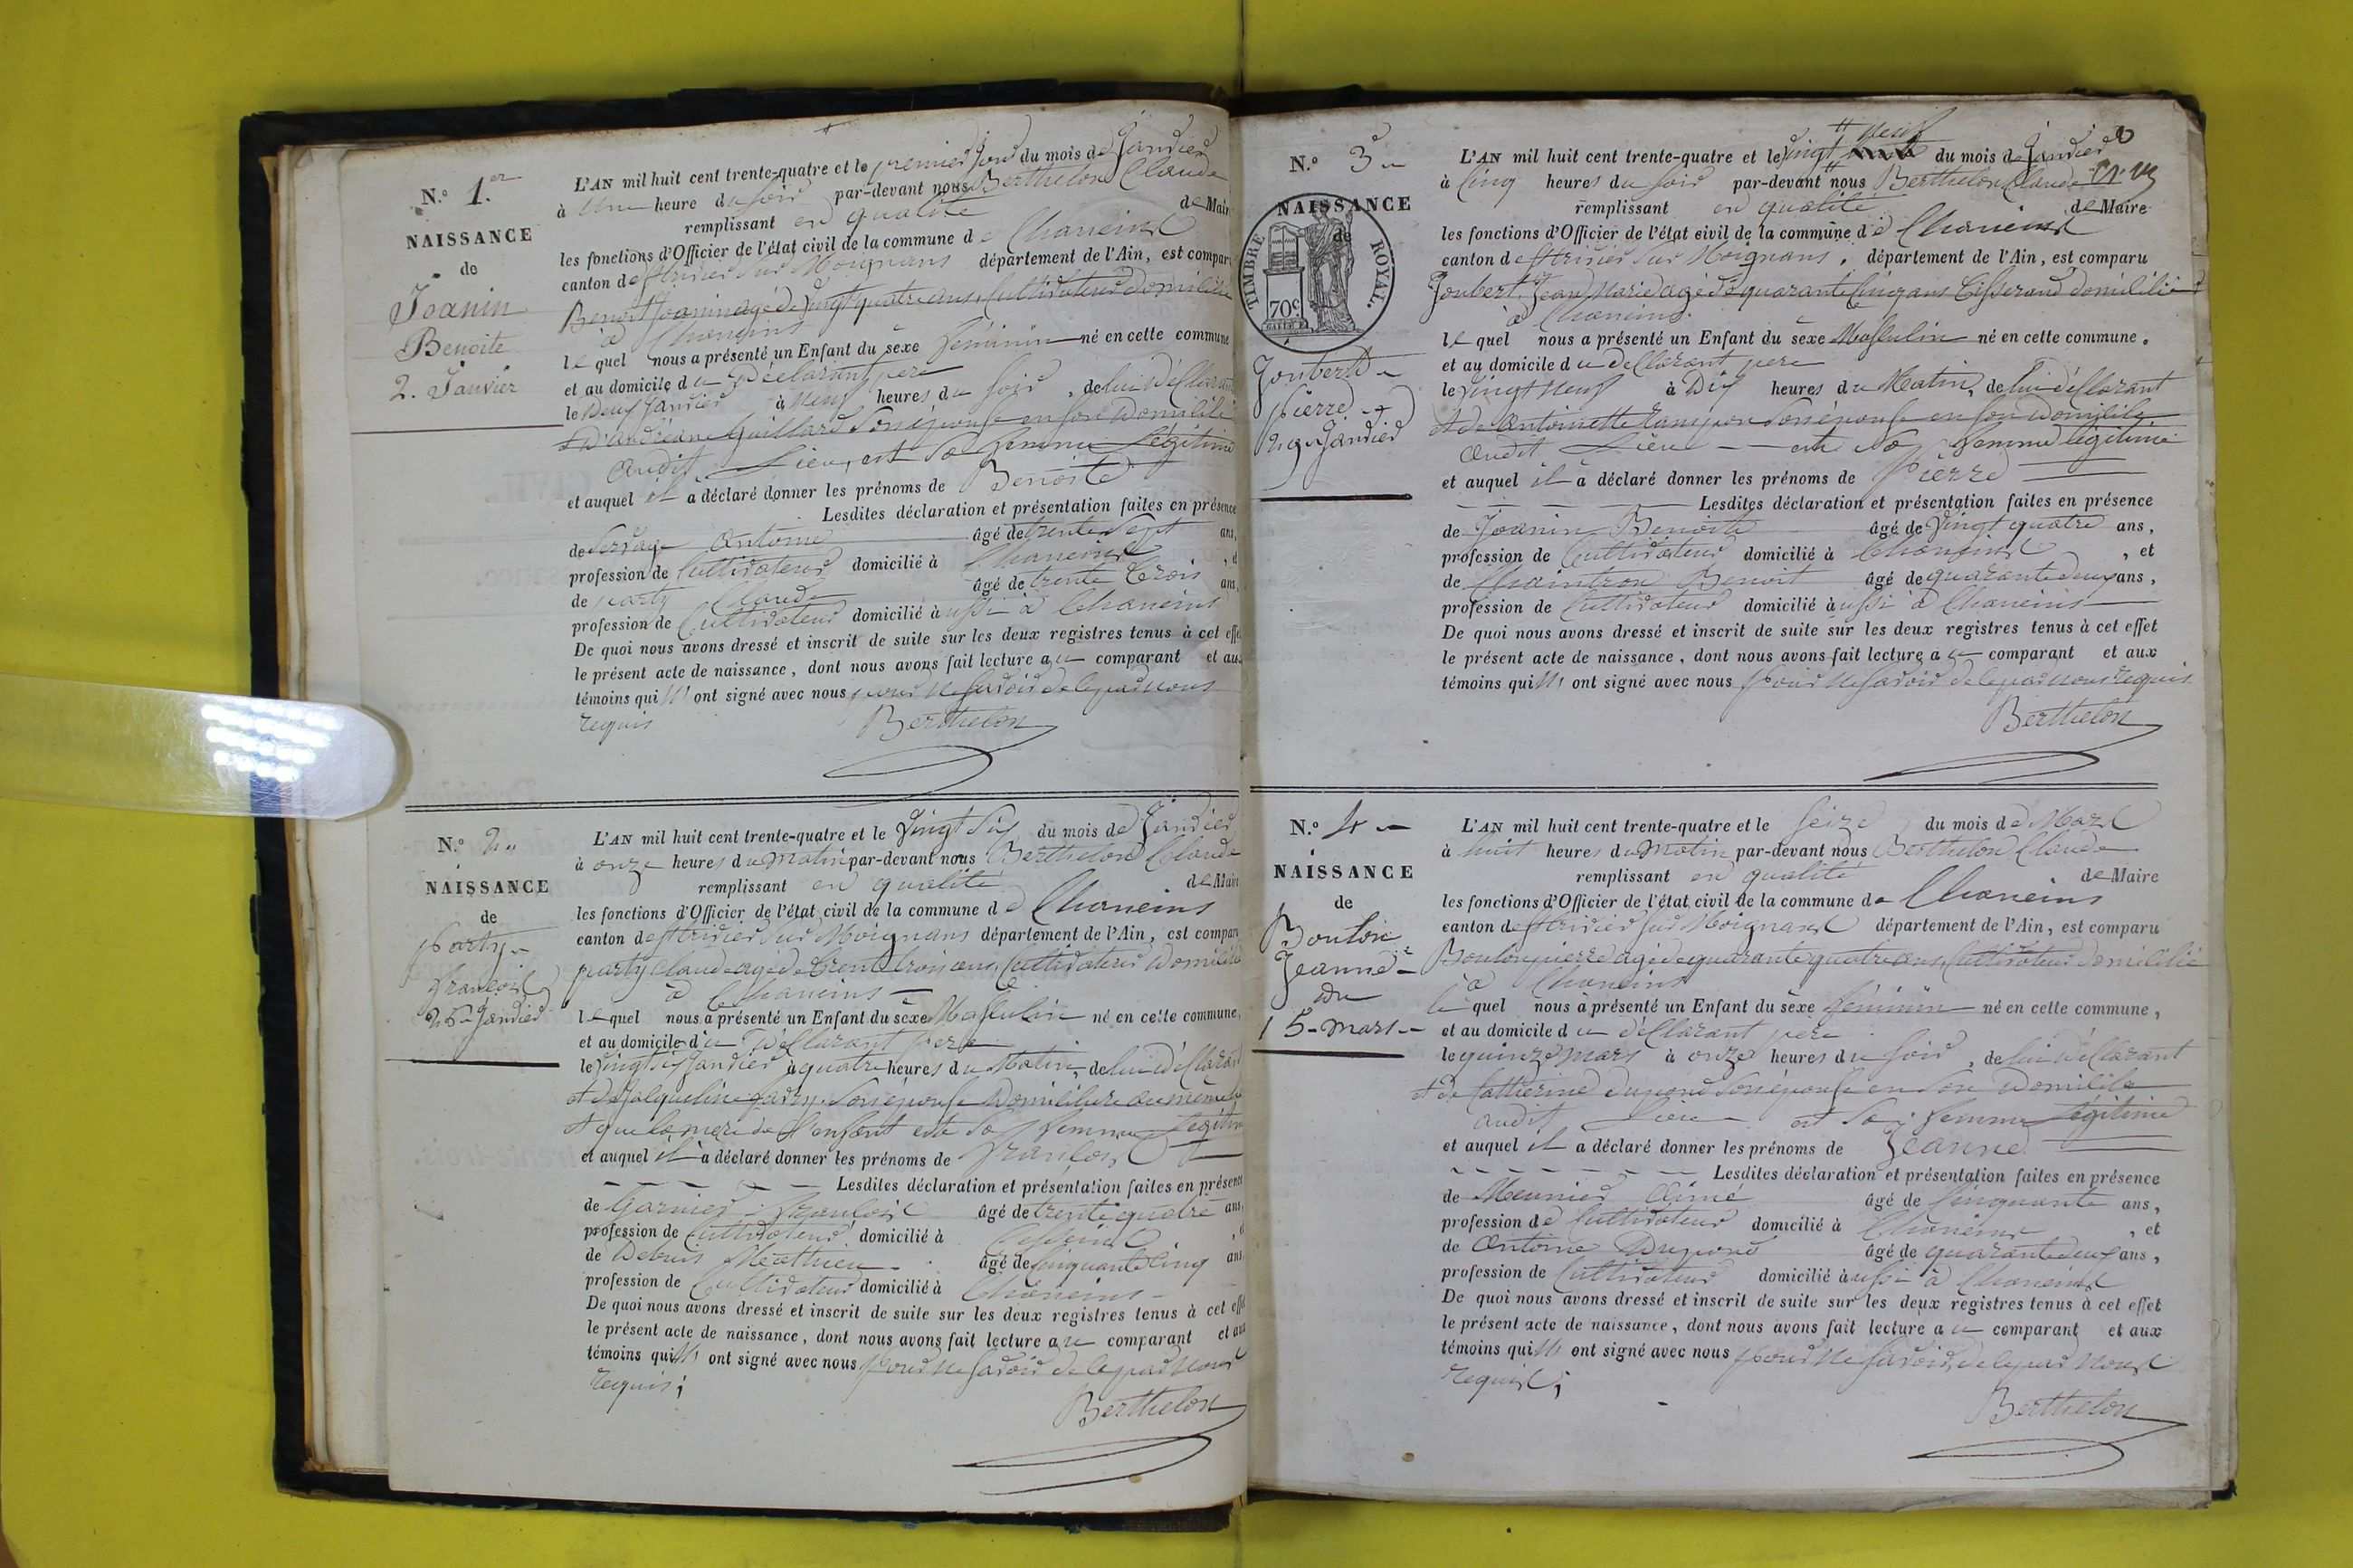 N.º 1.er
NAISSANCE
de
Joanin
Benoite
2. Janvier
L'AN mil huit cent trente-quatre et le premier Jour du mois de Janvier
à Une heure du Soir par-devant nous Berthelon Claude
remplissant en qualité de Maire
les fonctions d'Officier de l'état civil de la commune de Chaneins
canton de St trivier Sur Moignans département de l'Ain, est comparu
Benoit Joanin agé de Vingt quatre ans, Cultivateur domicilié
à Chaneins
le quel nous a présenté un Enfant du sexe féminin né en cette commune
et au domicile du Déclarant pere
le Deux Janvier à neuf heures du Soir, de lui déclarant
Guillard Son épouse en son domicile
audit Lieu, est Sa femme Légitime
et auquel il a déclaré donner les prénoms de Benoite
Lesdites déclaration et présentation faites en présence
de Antoine âgé de trente Sept ans,
profession de Cultivateur domicilié à Chaneins, et
de party Claude âgé de trente trois ans,
profession de Cultivateur domicilié aussi à Chaneins
De quoi nous avons dressé et inscrit de suite sur les deux registres tenus à cet effet
le présent acte de naissance, dont nous avons fait lecture au comparant et aux
témoins qui N'ont signé avec nous pour ne Savoir de ce par nous
requis
Berthelon
N.º 2
NAISSANCE
de
party
François
26 Janvier
L'AN mil huit cent trente-quatre et le Vingt Six du mois de Janvier
à onze heures du Matin par-devant nous Berthelon Claude
remplissant en qualité de Maire
les fonctions d'Officier de l'état civil de la commune de Chaneins
canton de St trivier Sur Moignans département de l'Ain, est comparu
party Claude agé de trente trois ans, Cultivateur Domicilié
à Chaneins
le quel nous a présenté un Enfant du sexe Masculin né en cette commune,
et au domicile du Déclarant pere
le Vingt Six Janvier à quatre heures du Matin, de lui déclarant
et de Jacqueline Son épouse Domiciliée au même lieu
et que la mere de l'enfant est Sa femme Légitime
et auquel il a déclaré donner les prénoms de François
Lesdites déclaration et présentation faites en présence
de Garnier François âgé de trente quatre ans,
profession de Cultivateur domicilié à
de Mathieu âgé de Cinquante Cinq ans
profession de Cultivateur domicilié à Chaneins
De quoi nous avons dressé et inscrit de suite sur les deux registres tenus à cet effet
le présent acte de naissance, dont nous avons fait lecture au comparant et aux
témoins qui N'ont signé avec nous pour ne Savoir de ce par Nous
requis;
Berthelon
N.º 3
NAISSANCE
de
TIMBRE ROYAL.
70c
Joubert
pierre
29 Janvier
L'AN mil huit cent trente-quatre et le Vingt neuf du mois de Janvier
à Cinq heures du Soir par-devant nous Berthelon Claude
remplissant en qualité de Maire
les fonctions d'Officier de l'état civil de la commune de Chaneins
canton de St trivier Sur Moignans, département de l'Ain, est comparu
Joubert Jean Marie agé de quarante Cinq ans Tisserand domicilié
à Chaneins
le quel nous a présenté un Enfant du sexe Masculin né en cette commune.
et au domicile du déclarant pere
le Vingt Neuf à Dix heures du Matin, de lui déclarant
et de Antoinette Son épouse en Son domicile
audit Lieu est Sa femme légitime
et auquel il a déclaré donner les prénoms de Pierre
Lesdites déclaration et présentation faites en présence
de Joanin Benoite âgé de Vingt quatre ans,
profession de Cultivateur domicilié à Chaneins, et
de Chaintron Benoit âgé de quarante deux ans,
profession de Cultivateur domicilié aussi à Chaneins
De quoi nous avons dressé et inscrit de suite sur les deux registres tenus à cet effet
le présent acte de naissance, dont nous avons fait lecture au comparant et aux
témoins qui N'ont signé avec nous pour ne Savoir de ce par nous requis
Berthelon
N.º 4
NAISSANCE
de
Boulon
Jeanne
du
15 mars
L'AN mil huit cent trente-quatre et le Seize du mois de Mars
à huit heures du Matin par-devant nous Berthelon Claude
remplissant en qualité de Maire
les fonctions d'Officier de l'état civil de la commune de Chaneins
canton de St trivier Sur Moignans département de l'Ain, est comparu
Boulon pierre agé de quarante quatre ans, Cultivateur domicilié
à Chaneins
le quel nous a présenté un Enfant du sexe féminin né en cette commune,
et au domicile du déclarant père
le quinze mars à onze heures du Soir, de lui déclarant
et de Catherine Dupond Son épouse en Son Domicile
audit Lieu est Sa femme Légitime
et auquel il a déclaré donner les prénoms de Jeanne
Lesdites déclaration et présentation faites en présence
de Meunier Aimé âgé de Cinquante ans,
profession de Cultivateur domicilié à Chaneins, et
de Antoine Dupond âgé de quarante deux ans,
profession de Cultivateur domicilié aussi à Chaneins
De quoi nous avons dressé et inscrit de suite sur les deux registres tenus à cet effet
le présent acte de naissance, dont nous avons fait lecture au comparant et aux
témoins qui N'ont signé avec nous pour ne Savoir de ce par Nous
requis;
Berthelon